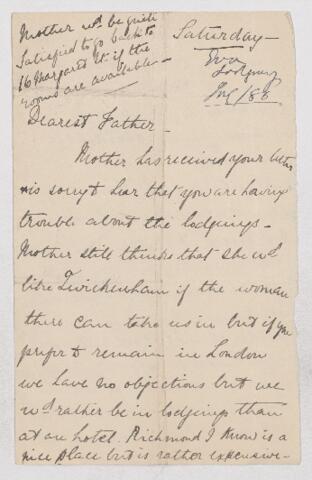 Mother wd be quite
satisfied to go back to
16 Margaret St. if the
rooms are available -
Saturday -
Lodgings
Dearest Father -
Mother has received your letter
& is sorry to hear that you are having
trouble about the lodgings -
Mother still thinks that she wd
like Twickenham if the woman
there can take us in but if you
prefer to remain in London
we have no objections but we
wd rather be in lodgings than
at an hotel. Richmond I know is a
nice place but is rather expensive -